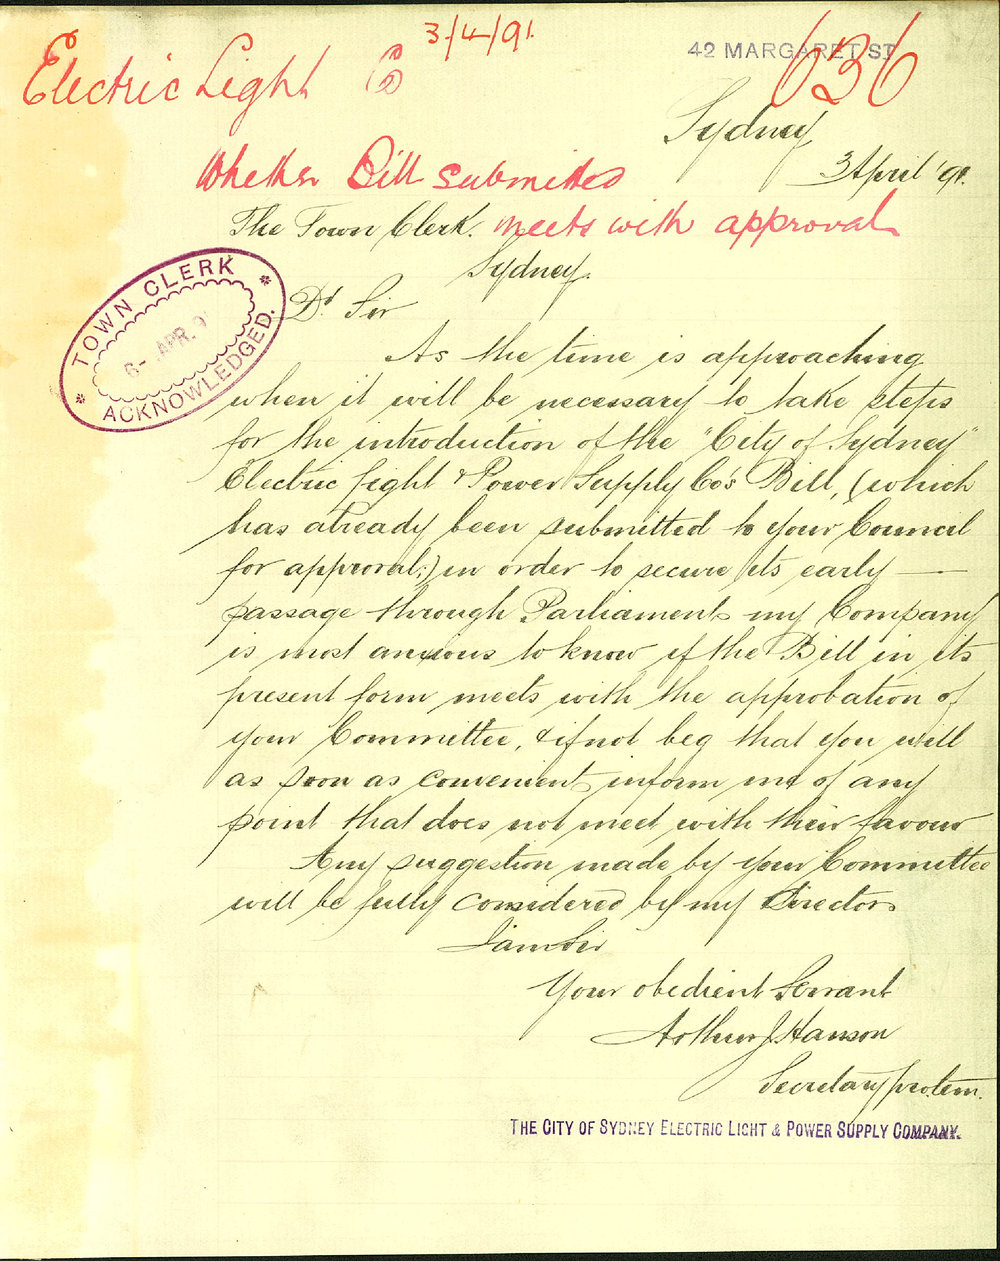 3/4/91.
Electric Light Co
42 MARGARET ST
636
Sydney
3 April '91.
Whether Bill submitted
The Town Clerk. meets with approval
Sydney.
TOWN CLERK
6- APR. 9
ACKNOWLEDGED.
Dr Sir
As the time is approaching
when it will be necessary to take steps
for the introduction of the "City of Sydney"
Electric Light & Power Supply Co's Bill, (which
has already been submitted to your Council
for approval;) in order to secure its early —
passage through Parliament my Company
is most anxious to know if the Bill in its
present form meets with the approbation of
your Committee, & if not beg that you will
as soon as convenient inform me of any
point that does not meet with their favour
Any suggestion made by your Committee
will be fully considered by my Directors
I am Sir
Your obedient Servant
Arthur J. Hanson
Secretary pro. tem.
THE CITY OF SYDNEY ELECTRIC LIGHT & POWER SUPPLY COMPANY.